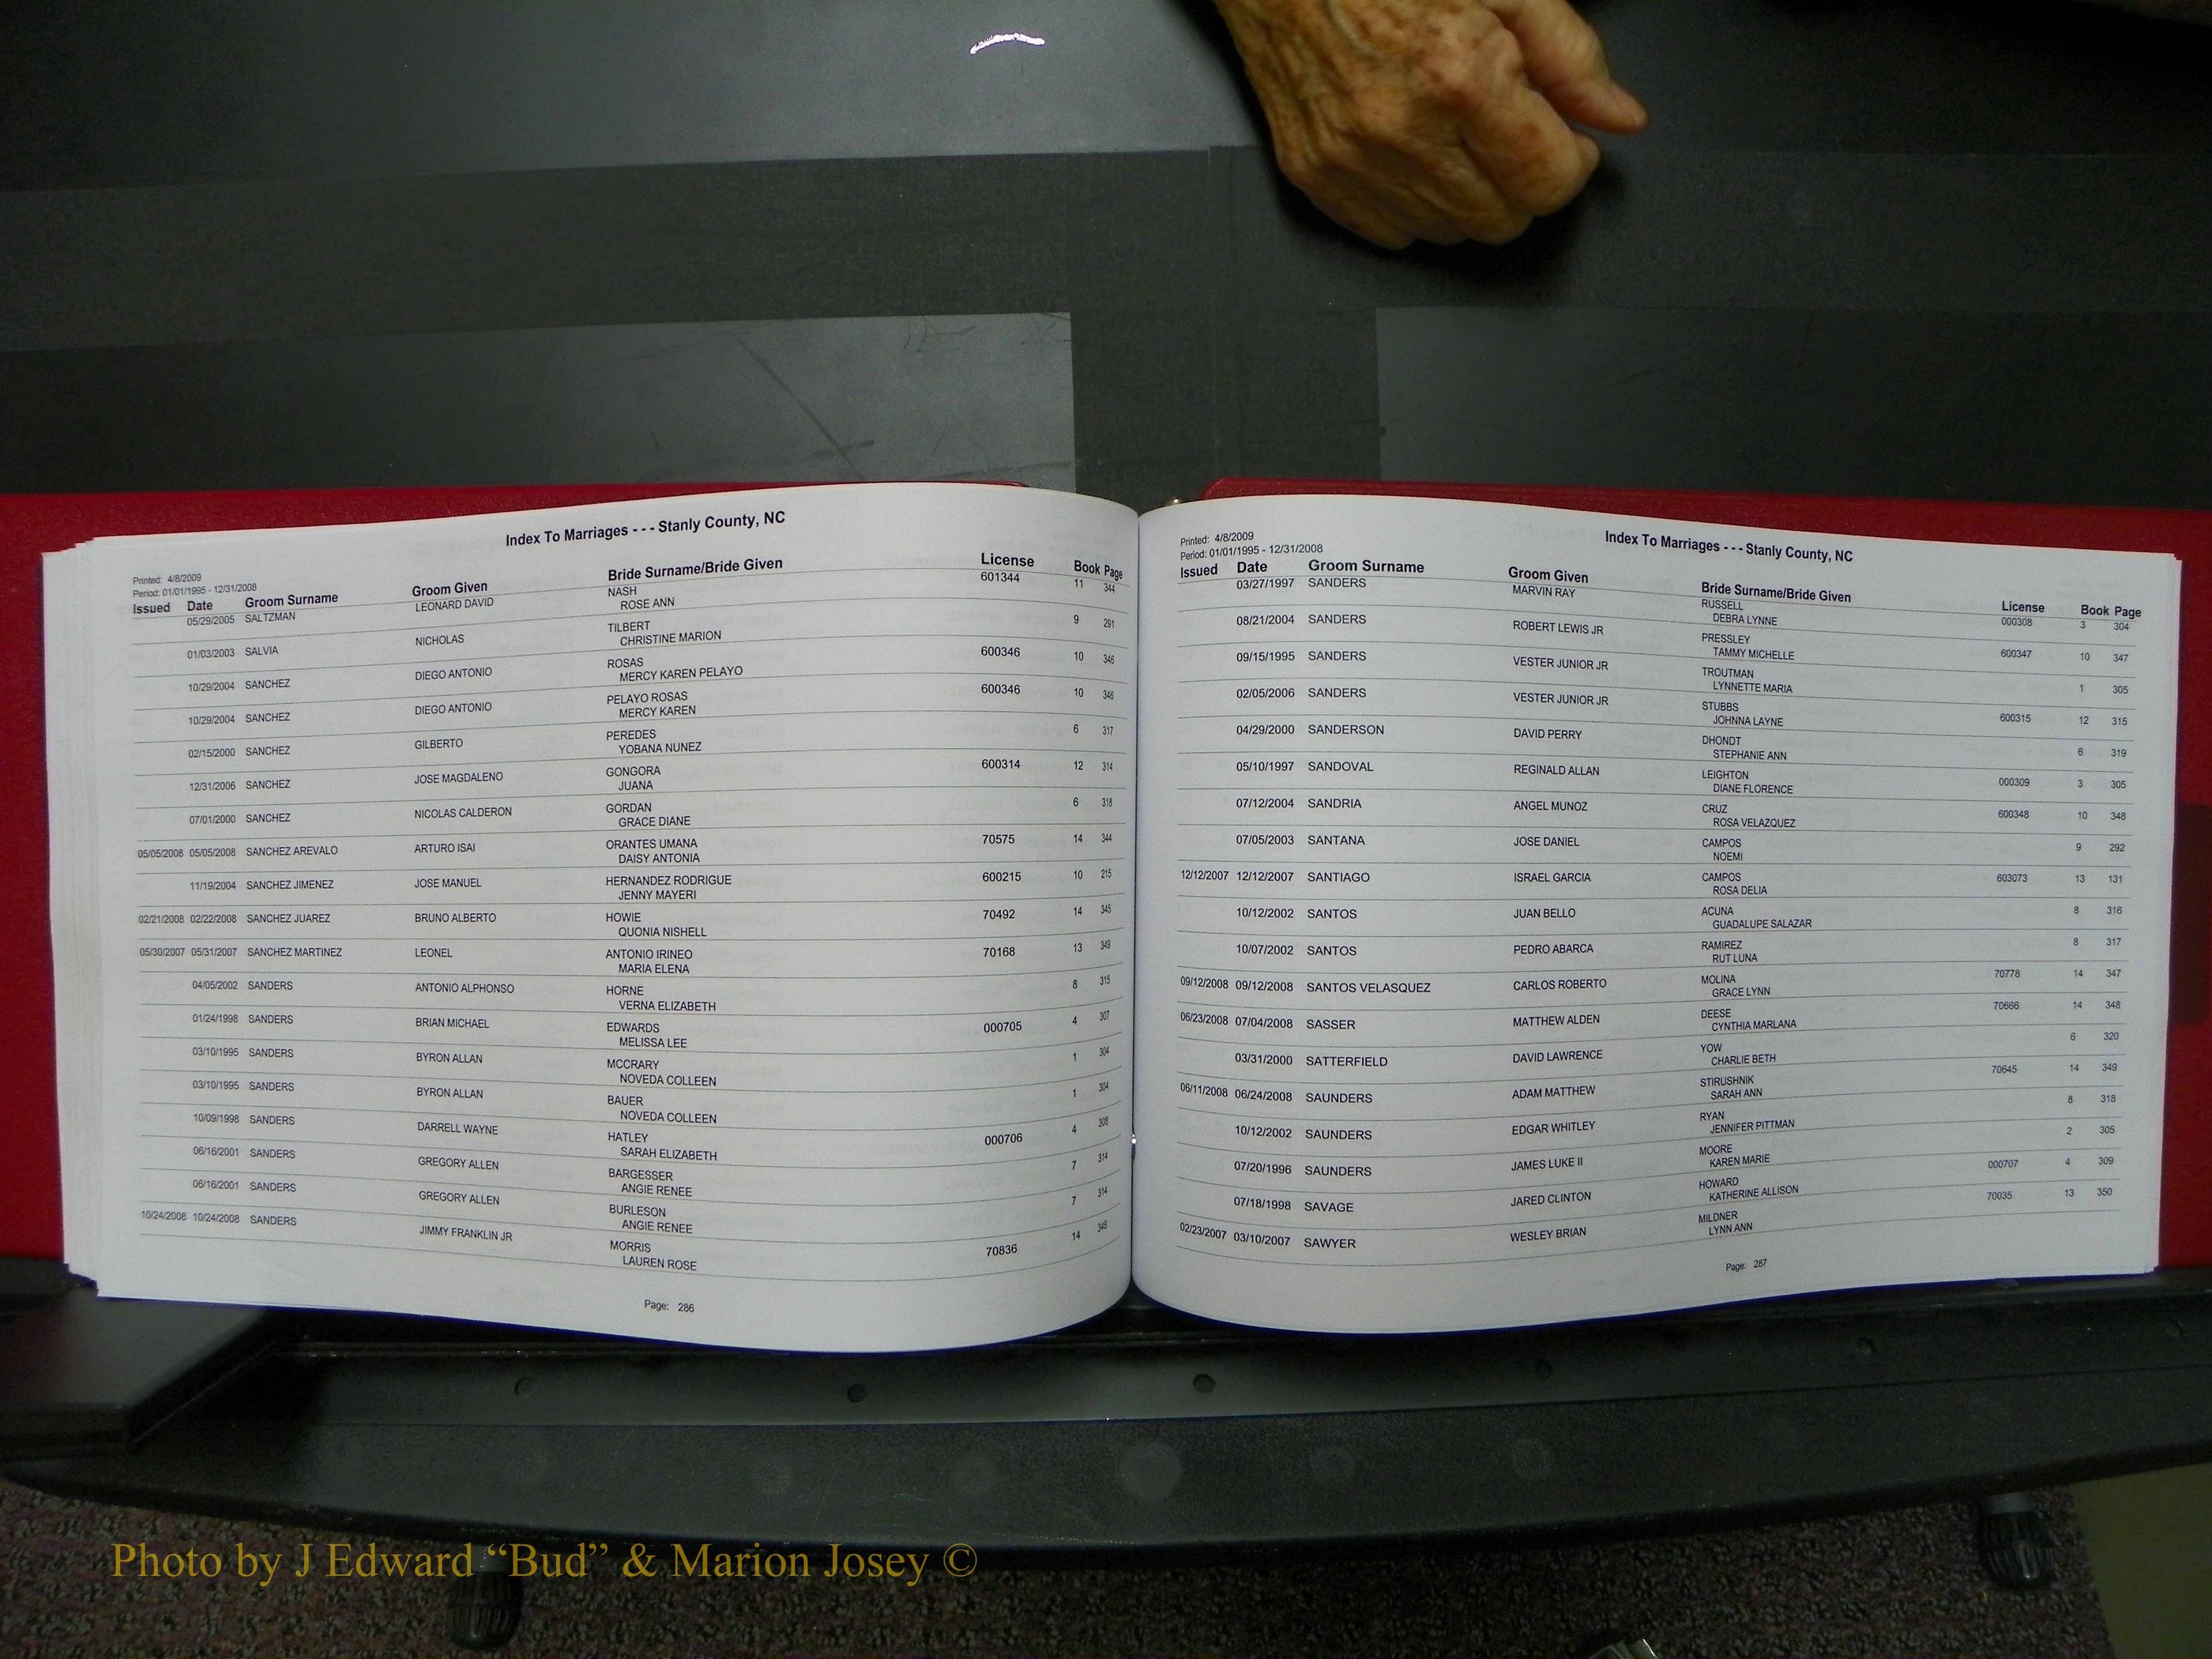 Index To Marriages - - - Stanly County, NC
Printed: 4/8/2009
Period: 01/01/1995 - 12/31/2008
Issued Date Groom Surname Groom Given Bride Surname/Bride Given License Book Page
05/29/2005 SALTZMAN LEONARD DAVID NASH 601344 11 344
ROSE ANN
01/03/2003 SALVIA NICHOLAS TILBERT 9 291
CHRISTINE MARION
10/29/2004 SANCHEZ DIEGO ANTONIO ROSAS 600346 10 346
MERCY KAREN PELAYO
10/29/2004 SANCHEZ DIEGO ANTONIO PELAYO ROSAS 600346 10 346
MERCY KAREN
02/15/2000 SANCHEZ GILBERTO PEREDES 6 317
YOBANA NUNEZ
12/31/2006 SANCHEZ JOSE MAGDALENO GONGORA 600314 12 314
JUANA
07/01/2000 SANCHEZ NICOLAS CALDERON GORDAN 6 318
GRACE DIANE
05/05/2008 05/05/2008 SANCHEZ AREVALO ARTURO ISAI ORANTES UMANA 70575 14 344
DAISY ANTONIA
11/19/2004 SANCHEZ JIMENEZ JOSE MANUEL HERNANDEZ RODRIGUE 600215 10 215
JENNY MAYERI
02/21/2008 02/22/2008 SANCHEZ JUAREZ BRUNO ALBERTO HOWIE 70492 14 345
QUONIA NISHELL
05/30/2007 05/31/2007 SANCHEZ MARTINEZ LEONEL ANTONIO IRINEO 70168 13 349
MARIA ELENA
04/05/2002 SANDERS ANTONIO ALPHONSO HORNE 8 315
VERNA ELIZABETH
01/24/1998 SANDERS BRIAN MICHAEL EDWARDS 000705 4 307
MELISSA LEE
03/10/1995 SANDERS BYRON ALLAN MCCRARY 1 304
NOVEDA COLLEEN
03/10/1995 SANDERS BYRON ALLAN BAUER 1 304
NOVEDA COLLEEN
10/09/1998 SANDERS DARRELL WAYNE HATLEY 000706 4 308
SARAH ELIZABETH
06/16/2001 SANDERS GREGORY ALLEN BARGESSER 7 314
ANGIE RENEE
06/16/2001 SANDERS GREGORY ALLEN BURLESON 7 314
ANGIE RENEE
10/24/2008 10/24/2008 SANDERS JIMMY FRANKLIN JR MORRIS 70836 14 346
LAUREN ROSE
Page: 286
Index To Marriages - - - Stanly County, NC
Printed: 4/8/2009
Period: 01/01/1995 - 12/31/2008
Issued Date Groom Surname Groom Given Bride Surname/Bride Given License Book Page
03/27/1997 SANDERS MARVIN RAY RUSSELL 000308 3 304
DEBRA LYNNE
08/21/2004 SANDERS ROBERT LEWIS JR PRESSLEY 600347 10 347
TAMMY MICHELLE
09/15/1995 SANDERS VESTER JUNIOR JR TROUTMAN 1 305
LYNNETTE MARIA
02/05/2006 SANDERS VESTER JUNIOR JR STUBBS 600315 12 315
JOHNNA LAYNE
04/29/2000 SANDERSON DAVID PERRY DHONDT 6 319
STEPHANIE ANN
05/10/1997 SANDOVAL REGINALD ALLAN LEIGHTON 000309 3 305
DIANE FLORENCE
07/12/2004 SANDRIA ANGEL MUNOZ CRUZ 600348 10 348
ROSA VELAZQUEZ
07/05/2003 SANTANA JOSE DANIEL CAMPOS 9 292
NOEMI
12/12/2007 12/12/2007 SANTIAGO ISRAEL GARCIA CAMPOS 603073 13 131
ROSA DELIA
10/12/2002 SANTOS JUAN BELLO ACUNA 8 316
GUADALUPE SALAZAR
10/07/2002 SANTOS PEDRO ABARCA RAMIREZ 8 317
RUT LUNA
09/12/2008 09/12/2008 SANTOS VELASQUEZ CARLOS ROBERTO MOLINA 70778 14 347
GRACE LYNN
06/23/2008 07/04/2008 SASSER MATTHEW ALDEN DEESE 70666 14 348
CYNTHIA MARLANA
03/31/2000 SATTERFIELD DAVID LAWRENCE YOW 6 320
CHARLIE BETH
06/11/2008 06/24/2008 SAUNDERS ADAM MATTHEW STIRUSHNIK 70645 14 349
SARAH ANN
10/12/2002 SAUNDERS EDGAR WHITLEY RYAN 8 318
JENNIFER PITTMAN
07/20/1996 SAUNDERS JAMES LUKE II MOORE 2 305
KAREN MARIE
07/18/1998 SAVAGE JARED CLINTON HOWARD 000707 4 309
KATHERINE ALLISON
02/23/2007 03/10/2007 SAWYER WESLEY BRIAN MILDNER 70035 13 350
LYNN ANN
Page: 287
Photo by J Edward “Bud” & Marion Josey ©